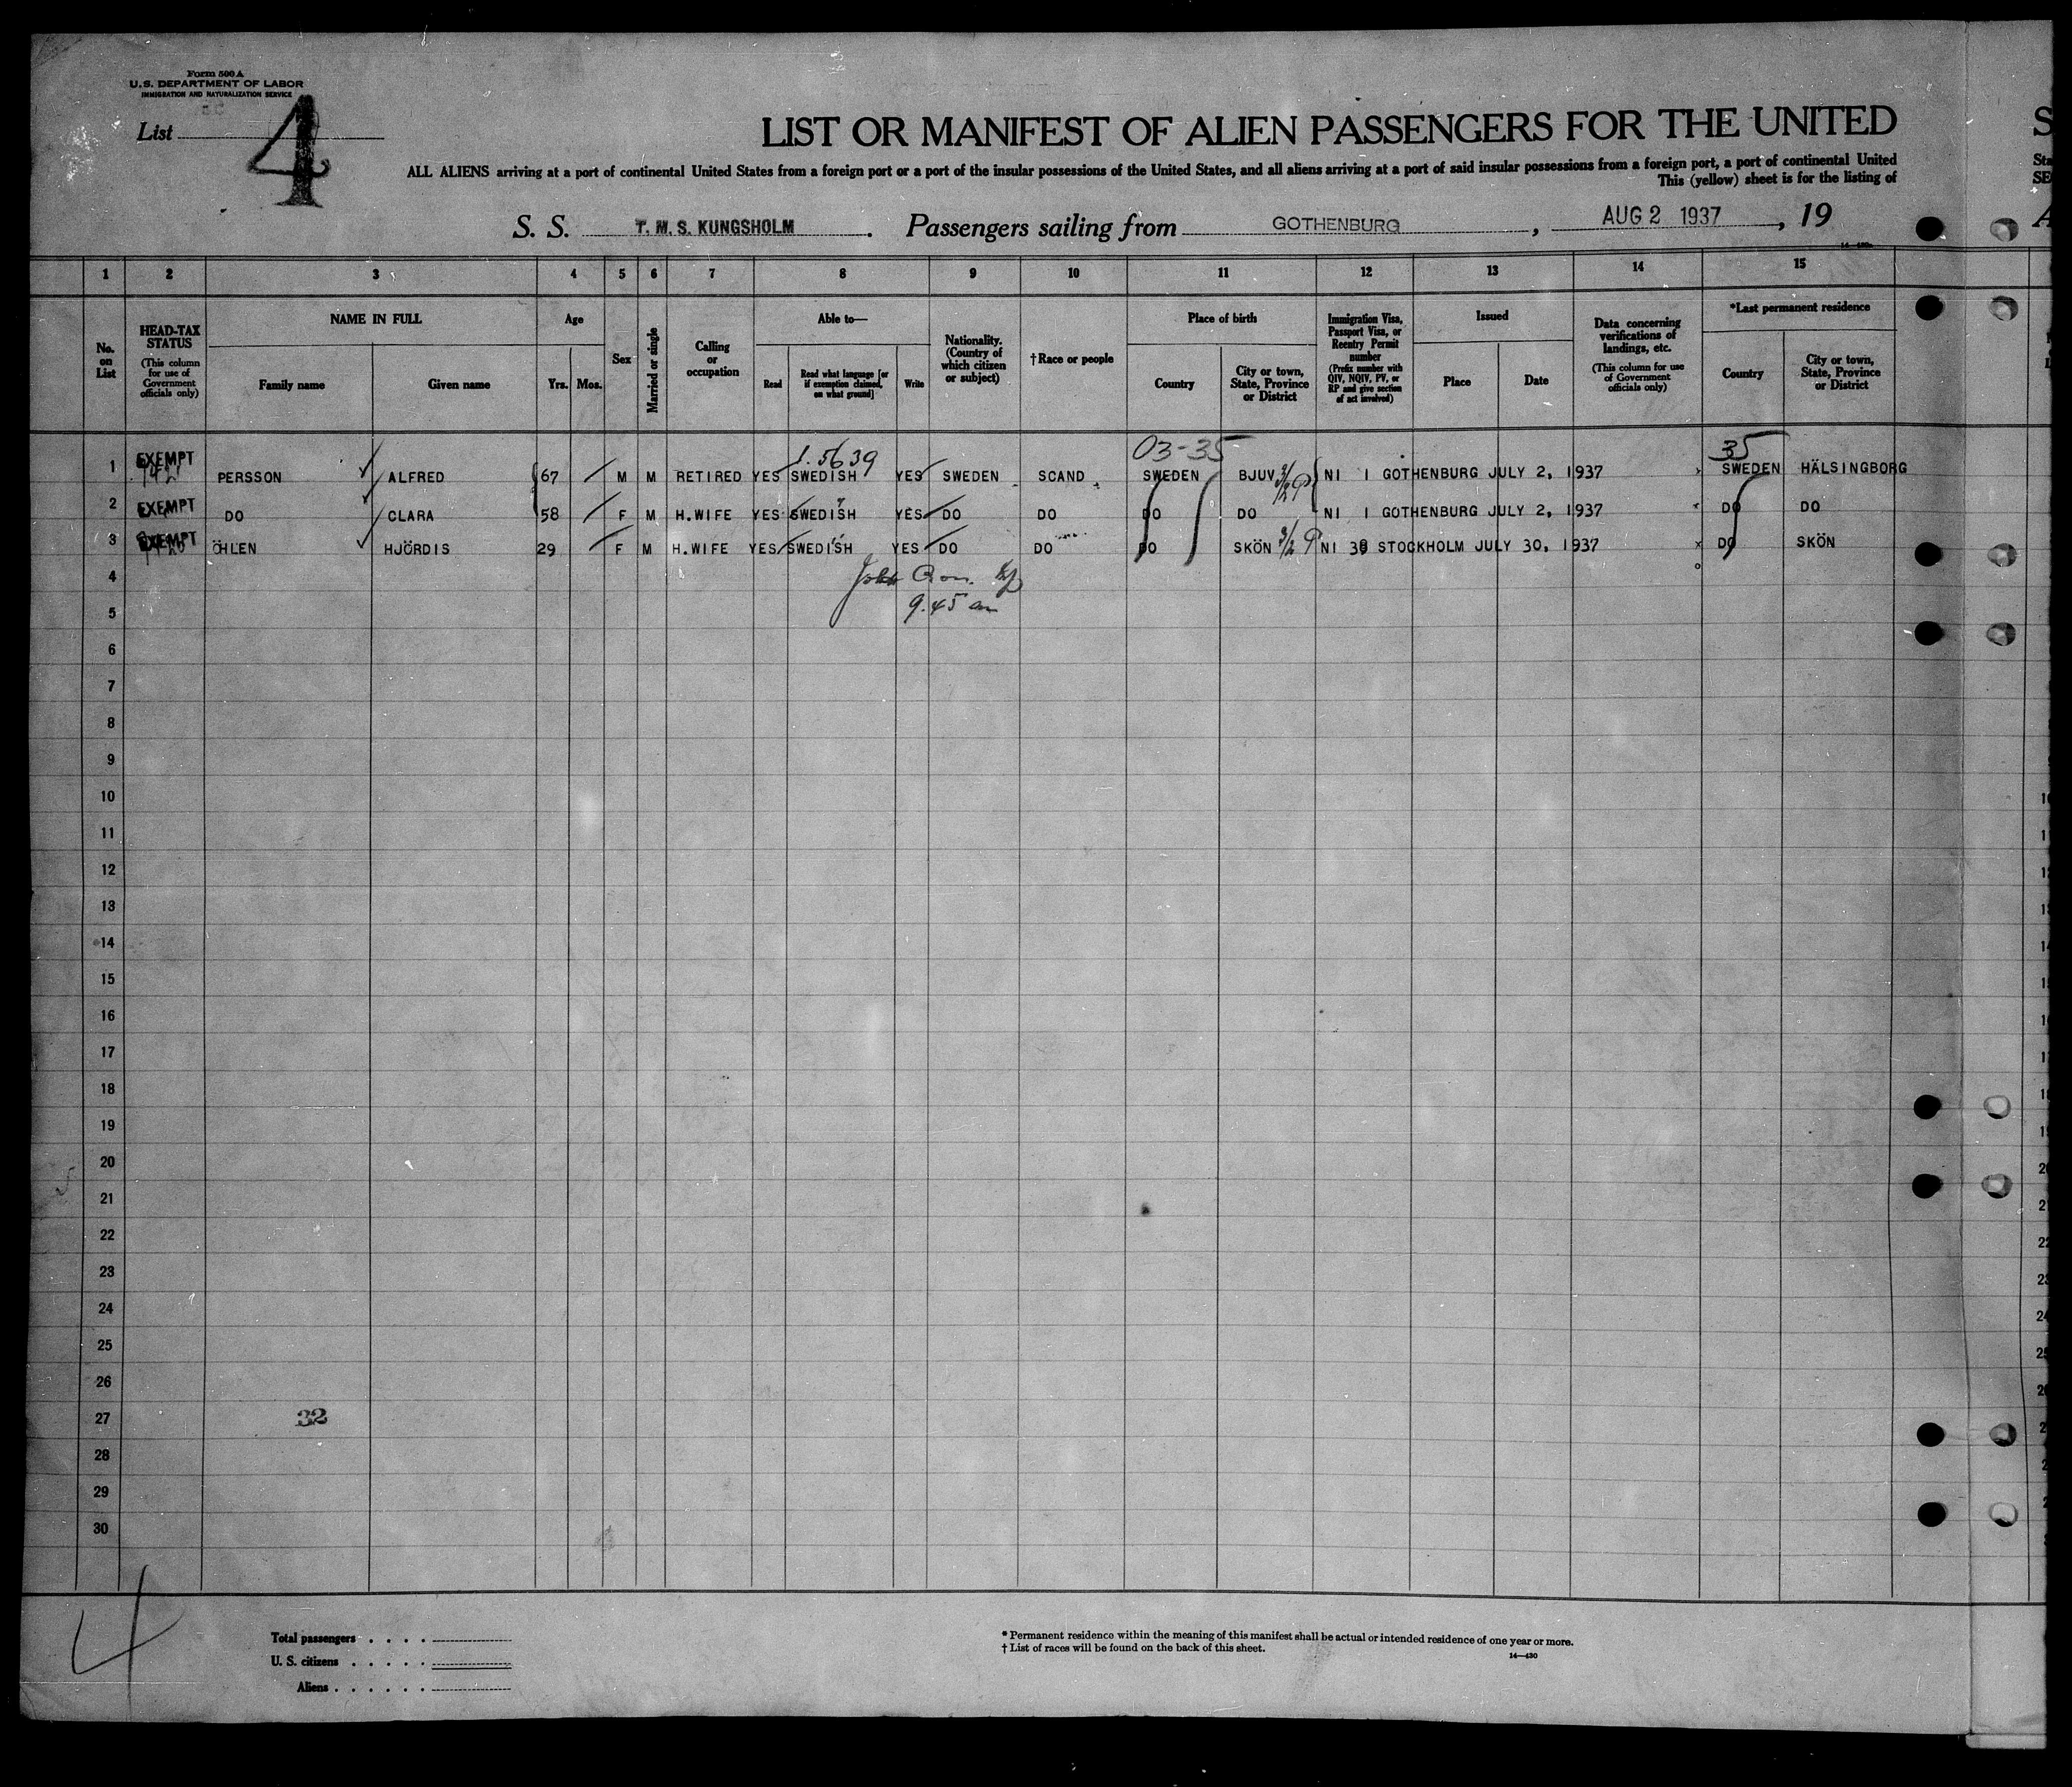 Form 500 A
U. S. DEPARTMENT OF LABOR
IMMIGRATION AND NATURALIZATION SERVICE
List 4
LIST OR MANIFEST OF ALIEN PASSENGERS FOR THE UNITED
ALL ALIENS arriving at a port of continental United States from a foreign port or a port of the insular possessions of the United States, and all aliens arriving at a port of said insular possessions from a foreign port, a port of continental United
This (yellow) sheet is for the listing of
S. S. T. M. S. KUNGSHOLM. Passengers sailing from GOTHENBURG, AUG 2 1937, 19
1 2 3 4 5 6 7 8 9 10 11 12 13 14 15
No. on List
HEAD-TAX STATUS
(This column for use of Government officials only)
NAME IN FULL
Family name Given name
Age
Yrs. Mos.
Sex
Married or single
Calling or occupation
Able to—
Read
Read what language [or if exemption claimed, on what ground]
Write
Nationality. (Country of which citizen or subject)
†Race or people
Place of birth
Country
City or town, State, Province or District
Immigration Visa, Passport Visa, or Reentry Permit number
(Prefix number with QIV, NQIV, PV, or RP and give section of act involved)
Issued
Place Date
Data concerning verifications of landings, etc.
(This column for use of Government officials only)
*Last permanent residence
Country
City or town, State, Province or District
1.5639 03-35 35
1 EXEMPT PERSSON ALFRED 67 M M RETIRED YES SWEDISH YES SWEDEN SCAND. SWEDEN BJUV NI 1 GOTHENBURG JULY 2, 1937 SWEDEN HÄLSINGBORG
2 EXEMPT DO CLARA 58 F M H.WIFE YES SWEDISH YES DO DO DO DO NI 1 GOTHENBURG JULY 2, 1937 DO DO
3 EXEMPT ÖHLEN HJÖRDIS 29 F M H.WIFE YES SWEDISH YES DO DO DO SKÖN NI 38 STOCKHOLM JULY 30, 1937 DO SKÖN
4
9.45 am
5
6
7
8
9
10
11
12
13
14
15
16
17
18
19
20
21
22
23
24
25
26
27 32
28
29
30
4
Total passengers
U. S. citizens
Aliens
* Permanent residence within the meaning of this manifest shall be actual or intended residence of one year or more.
† List of races will be found on the back of this sheet.
14—430